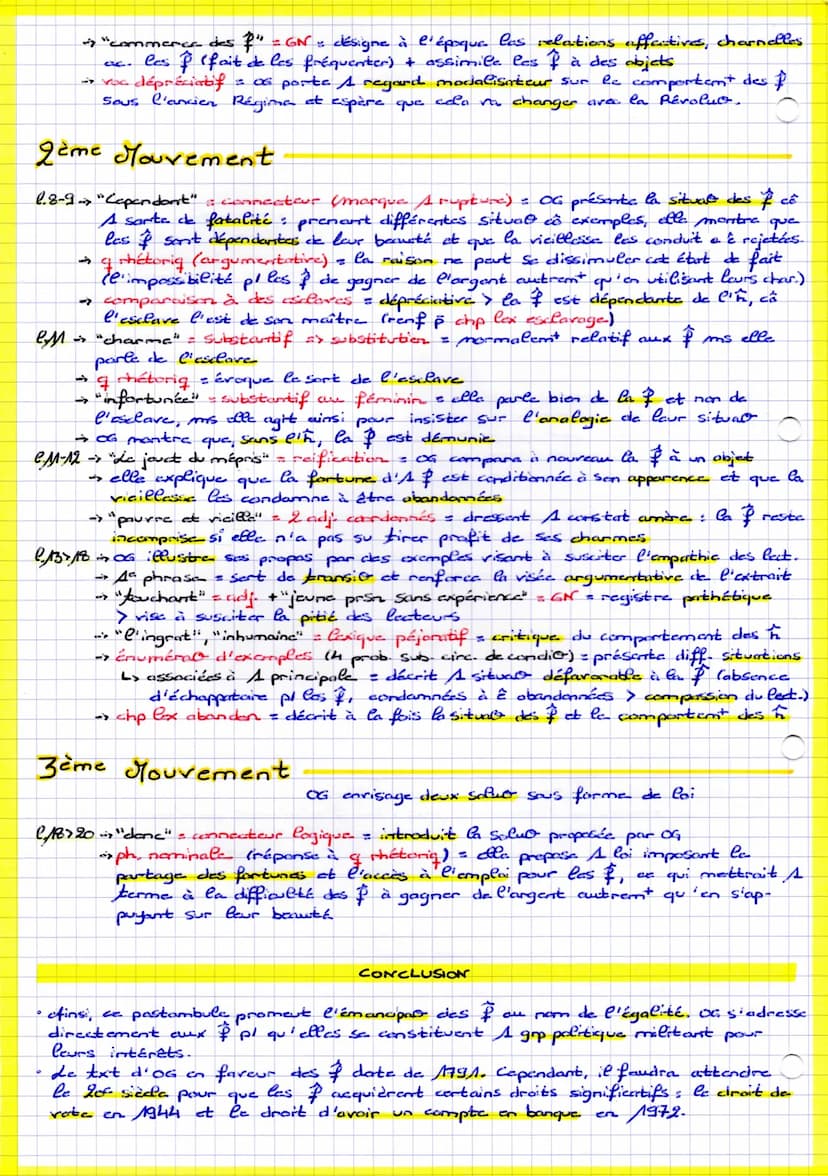 → "commerce des f̂" = GN = désigne à l'époque les relations affectives, charnelles
ac. les f̂ (fait de les fréquenter) + assimile les f̂ à des objets
→ voc dépréciatif = OG porte 1 regard modalisateur sur le comportemt des f̂
sous l'ancien Régime et espère que cela va changer avec la Révoluo.
2ème Mouvement
l.8-9 → "Cependant" = connecteur (marque 1 rupture) = OG présente la situao des f̂ cô
1 sorte de fatalité : prenant différentes situao cô exemples, elle montre que
les f̂ sont dépendantes de leur beauté et que la vieillesse les conduit a ê rejetées.
→ q rhétoriq (argumentative) = la raison ne peut se dissimuler cet état de fait
(l'impossibilité pl les f̂ de gagner de l'argent autremt qu'en utilisant leurs char.)
→ comparaison à des esclaves = dépréciative > la f̂ est dépendante de l'ĥ, cô
l'esclave l'est de son maître (renf p̄ chp lex esclavage)
l.11 → "charme" = substantif => substitution = normalemt relatif aux f̂ ms elle
parle de l'esclave
→ q rhétoriq = évoque le sort de l'esclave
→ "infortunée" = substantif au féminin = elle parle bien de la f̂ et non de
l'esclave, ms elle agit ainsi pour insister sur l'analogie de leur situao
→ OG montre que, sans l'ĥ, la f̂ est démunie
l.11-12 → "Le jouet du mépris" = reification = OG compare à nouveau la f̂ à un objet
→ elle explique que la fortune d'1 f̂ est conditionnée à son apparence et que la
vieillesse les condamne à être abandonnées
→ "pauvre et vieille" = 2 adj. coordonnés = dressent 1 constat amère : la f̂ reste
incomprise si elle n'a pas su tirer profit de ses charmes
l.13>18 → OG illustre ses propos par des exemples visant à susciter l'empathie des lect.
→ 1e phrase = sert de transio et renforce la visée argumentative de l'extrait
→ "touchant" = adj. + "jeune prsn sans expérience" = GN = registre pathétique
> vise à susciter la pitié des lecteurs
→ "l'ingrat", "inhumaine" = lexique péjoratif = critique du comportement des ĥ
→ énumérao d'exemples (4 prob. sub. circ. de condio) = présente diff. situations
↳ associées à 1 principale = décrit 1 situao défavorable à la f̂ (absence
d'échappatoire pl les f̂, condamnées à ê abandonnées > compassion du lect.)
→ chp lex abandon = décrit à la fois la situao des f̂ et le comportemt des ĥ
3ème Mouvement
OG envisage deux soluo sous forme de loi
l.18>20 → "donc" = connecteur logique = introduit la soluo proposée par OG
→ ph. nominale (réponse à q rhétoriq) = elle propose 1 loi imposant le
partage des fortunes et l'accès à l'emploi pour les f̂, ce qui mettrait 1
terme à la difficulté des f̂ à gagner de l'argent autremt qu'en s'ap-
puyant sur leur beauté
CONCLUSION
• Ainsi, ce postambule promeut l'émancipao des f̂ au nom de l'égalité. OG s'adresse
directement aux f̂ pl qu'elles se constituent 1 grp politique militant pour
leurs intérêts.
• Le txt d'OG en faveur des f̂ date de 1791. Cependant, il faudra attendre
le 20e siècle pour que les f̂ acquièrent certains droits significatifs : le droit de
vote en 1944 et le droit d'avoir un compte en banque en 1972.